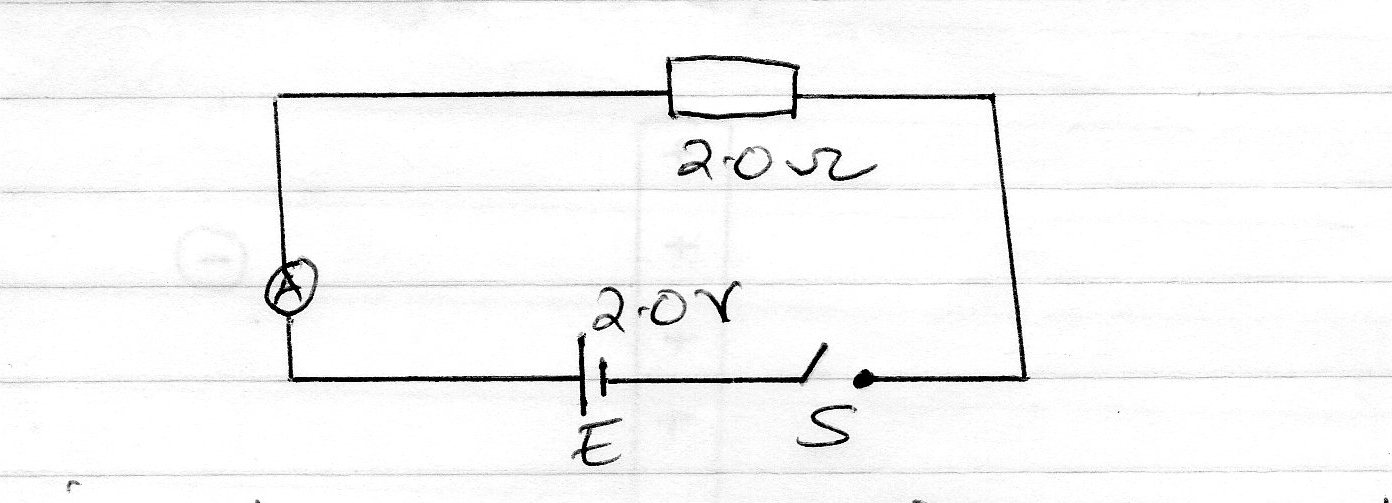 2.0Ω
A
2.0V
E
S